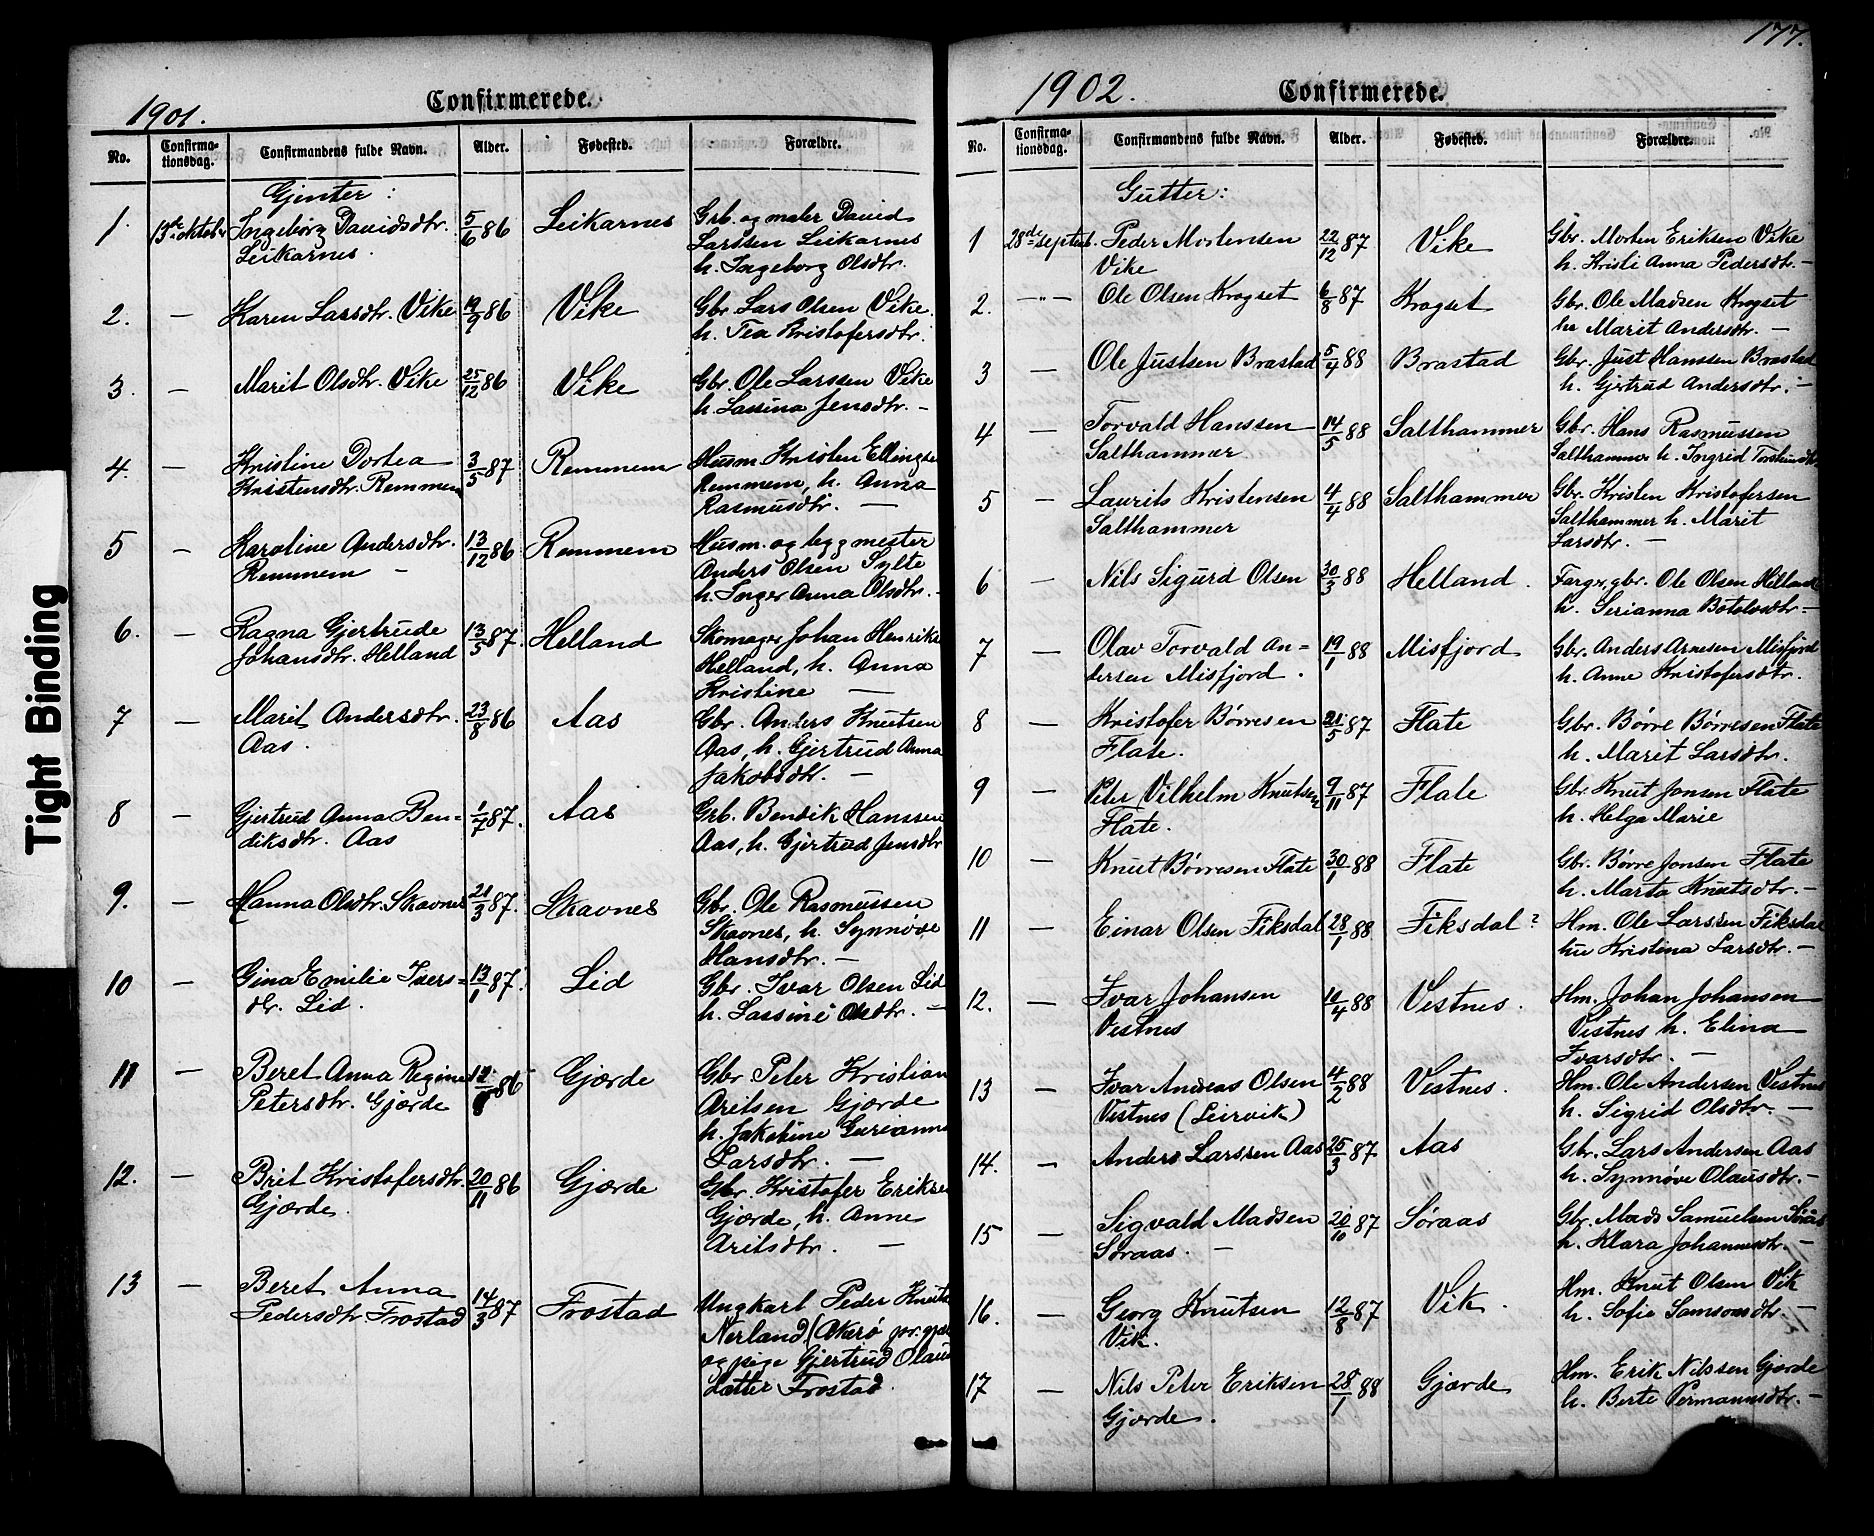 1901.
Confirmerede.
No.
Confirma-
tionsdag.
Confirmandens fulde Navn.
Alder.
Fødested.
Forældre.
Gjenter:
1. 13de oktober Ingeborg Davidsdtr. 5/6 86 Leikarnes Grb. og maler David
Leikarnes. Larssen Leikarnes
h. Ingeborg Olsdtr.
2. — Karen Larsdtr. Vike 19/9 86 Vike Gbr. Lars Olsen Vike.
h. Tea Kristofersdtr.
3. — Marit Olsdtr. Vike 25/12 86 Vike Gbr. Ole Larssen Vike
h. Lassina Jensdtr. —
4. — Kristine Dortea 3/5 87 Remmem Husm. Kristen Ellingse
Kristensdtr. Remmem Remmem, h. Anna
Rasmusdtr. —
5 — Karoline Andersdtr. 13/12 86 Remmem Husm. og byggmester
Remmem — Anders Olsen Sylte
h. Inger Anna Olsdtr. —
6. — Ragna Gjertrude 13/5 87. Helland Skomager Johan Henrike
Johansdtr. Helland Helland, h. Anna
Kristine —
7 — Marit Andersdtr. 23/8 86 Aas Gbr. Anders Knutsen
Aas. Aas, h. Gjertrud Anna
Jakobsdtr. —
8 — Gjertrud Anna Ben- 1/7 87. Aas Grb. Bendik Hanssen
diksdtr. Aas Aas, h. Gjertrud Jensdtr
9. — Hanna Olsdtr. Skavnes 21/3 87. Skavnes Gbr. Ole Rasmussen
Skavnes, h. Synnøve
Hansdtr. —
10 — Gina Emilie Ivers= 13/1 87. Lid Gbr. Ivar Olsen Lid
dtr. Lid. h. Lassine Olsdtr. —
11 — Beret Anna Regine 86 Gjørde Gbr Peter Kristian
Petersdtr. Gjørde Aritsen Gjørde
h. Jakobine
Larsdtr. —
12. — Brit Kristofersdtr. 20/11 86 Gjørde Gbr. Kristofer Erikse
Gjørde. Gjørde, h. Anne
Aritsdtr. —
13 — Beret Anna 14/3 87 Frostad Ungkarl Peder Knuts
Pedersdtr Frostad Nerland, (Akerø
og pige Gjertrud Olaus
datter Frostad.
177.
1902.
Confirmerede.
No.
Confirma-
tionsdag.
Confirmandens fulde Navn.
Alder.
Fødested.
Forældre.
Gutter:
1 28de septb. Peder Mortensen 22/12 87 Vike Gbr. Morten Eriksen Vike
Vike h. Kristi Anna Pedersdtr. —
2. —"— Ole Olsen Krogset 6/8 87 Krogset Gbr. Ole Madsen Krogset
h. Marit Andersdtr. —
3 — Ole Justsen Brastad 5/4 88 Brastad Gbr. Just Hanssen Brastad
h. Gjertrud Andersdtr. —
4 — Torvald Hanssen 14/5 88 Salthammer Gbr. Hans Rasmussen
Salthammer. Salthammer h. Ingrid
5 — Laurits Kristensen 4/4 88 Salthammer Gbr. Kristen Kristofersen
Salthammer Salthammer h. Marit
Larsdtr. —
6 — Nils Sigurd Olsen 30/3 88 Helland. Farger, gbr. Ole Olsen Helland
h. Serianna Botolvsdtr —
7 — Olav Torvald An= 19/1 88 Misfjord Gbr. Anders Arnesen Misfjord
dersen Misfjord. h. Anne Kristofersdtr.
8 — Kristofer Børresen 21/5 87 Flate Gbr. Børre Børresen Flate
Flate. h. Marit Larsdtr.
9 — Peter Vilhelm Knutsen 9/11 87 Flate Gbr Knut Jonsen Flate
Flate. h. Helga Marie
10 — Knut Børresen Flate 30/1 88 Flate Gbr. Børre Jonsen Flate
h. Marta Knutsdtr. —
11 — Einar Olsen Fiksdal 28/1 88 Fiksdal? Hm. Ole Larssen Fiksdal
hu Kristina Larsdtr. —
12. — Ivar Johansen 10/4 88 Vestnes. Hm. Johan Johansen
Vestnes Vestnes h. Elina
Ivarsdtr. —
13 — Ivar Andreas Olsen 4/2 88 Vestnes. Hm. Ole Andersen Vestnes
Vestnes (Leirvik) h. Sigrid Olsdtr. —
14. — Anders Larssen Aas 25/3 87 Aas Gbr. Lars Andersen Aas
h. Synnøve Olausdtr. —
15 — Sigvald Madsen 20/10 87 Søraas Gbr. Mads Samuelsen Søraas
Søraas. — h. Klara Johannesdtr. —
16. — Georg Knutsen 12/8 87 Vik. Hm. Knut Olsen Vik
Vik. h. Sofie Samsonsdtr. —
17 — Nils Peter Eriksen 28/1 88 Gjørde Hm. Erik Nilssen Gjørde
Gjørde. h. Berte Permannsdtr. —
Tight Binding